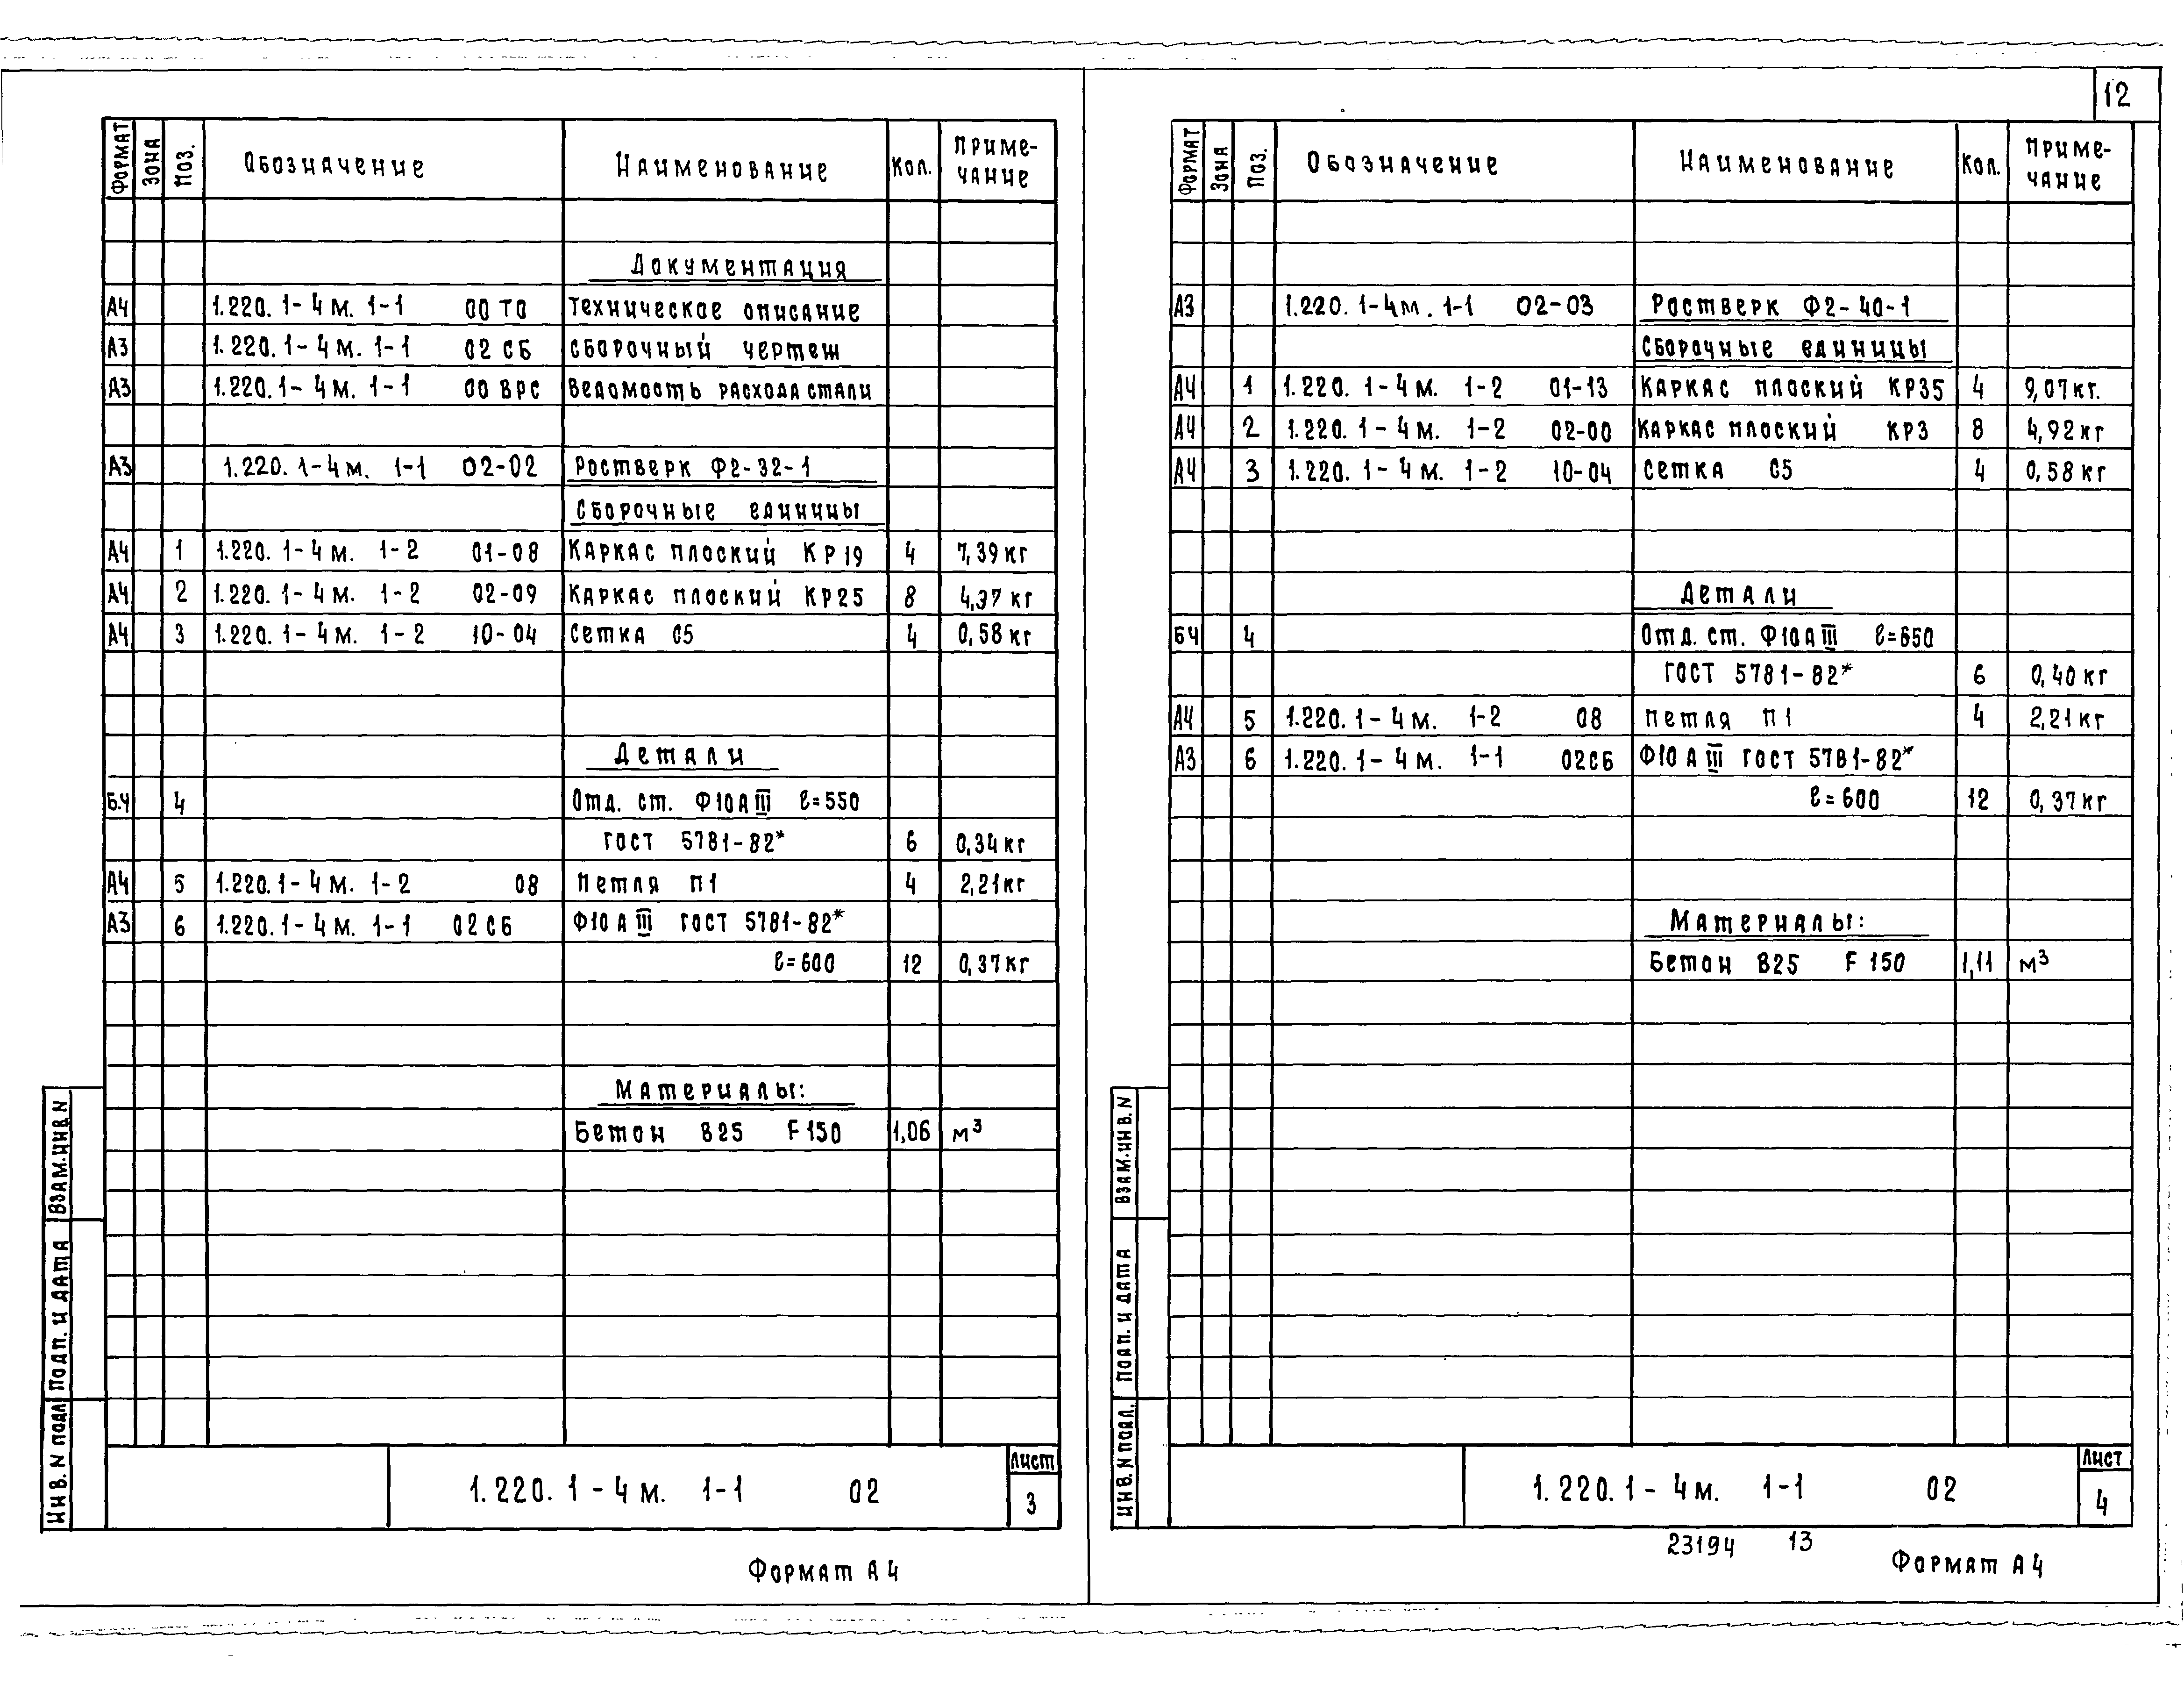 12
Формат Зона Поз. Обозначение Наименование Кол. Приме-
чание
Документация
А4 1.220.1-4м. 1-1 00 ТО Техническое описание
А3 1.220.1-4м. 1-1 02 СБ Сборочный чертеж
А3 1.220.1-4м. 1-1 00 ВРС Ведомость расхода стали
А3 1.220.1-4м. 1-1 02-02 Ростверк Ф2-32-1
Сборочные единицы
А4 1 1.220.1-4м. 1-2 01-08 Каркас плоский КР19 4 7,39 кг
А4 2 1.220.1-4м. 1-2 02-09 Каркас плоский КР25 8 4,37 кг
А4 3 1.220.1-4м. 1-2 10-04 Сетка С5 4 0,58 кг
Детали
Б.Ч 4 Отд. ст. Ф10АIII ℓ=550
ГОСТ 5781-82* 6 0,34 кг
А4 5 1.220.1-4м. 1-2 08 Петля П1 4 2,21 кг
А3 6 1.220.1-4м. 1-1 02СБ Ф10АIII ГОСТ 5781-82*
ℓ=600 12 0,37 кг
Материалы:
Бетон В25 F150 1,06 м³
Взам.инв.N
Подп. и дата
Инв. N подл
1.220.1-4м. 1-1 02
Лист
3
Формат А4
Формат Зона Поз. Обозначение Наименование Кол. Приме-
чание
А3 1.220.1-4м. 1-1 02-03 Ростверк Ф2-40-1
Сборочные единицы
А4 1 1.220.1-4м. 1-2 01-13 Каркас плоский КР35 4 9,07 кг.
А4 2 1.220.1-4м. 1-2 02-00 Каркас плоский КР3 8 4,92 кг
А4 3 1.220.1-4м. 1-2 10-04 Сетка С5 4 0,58 кг
Детали
БЧ 4 Отд. ст. Ф10АIII ℓ=650
ГОСТ 5781-82* 6 0,40 кг
А4 5 1.220.1-4м. 1-2 08 Петля П1 4 2,21 кг
А3 6 1.220.1-4м. 1-1 02СБ Ф10АIII ГОСТ 5781-82*
ℓ=600 12 0,37 кг
Материалы:
Бетон В25 F150 1,11 м³
Взам.инв.N
Подп. и дата
Инв. N подл.
1.220.1-4м. 1-1 02
Лист
4
23194 13
Формат А4